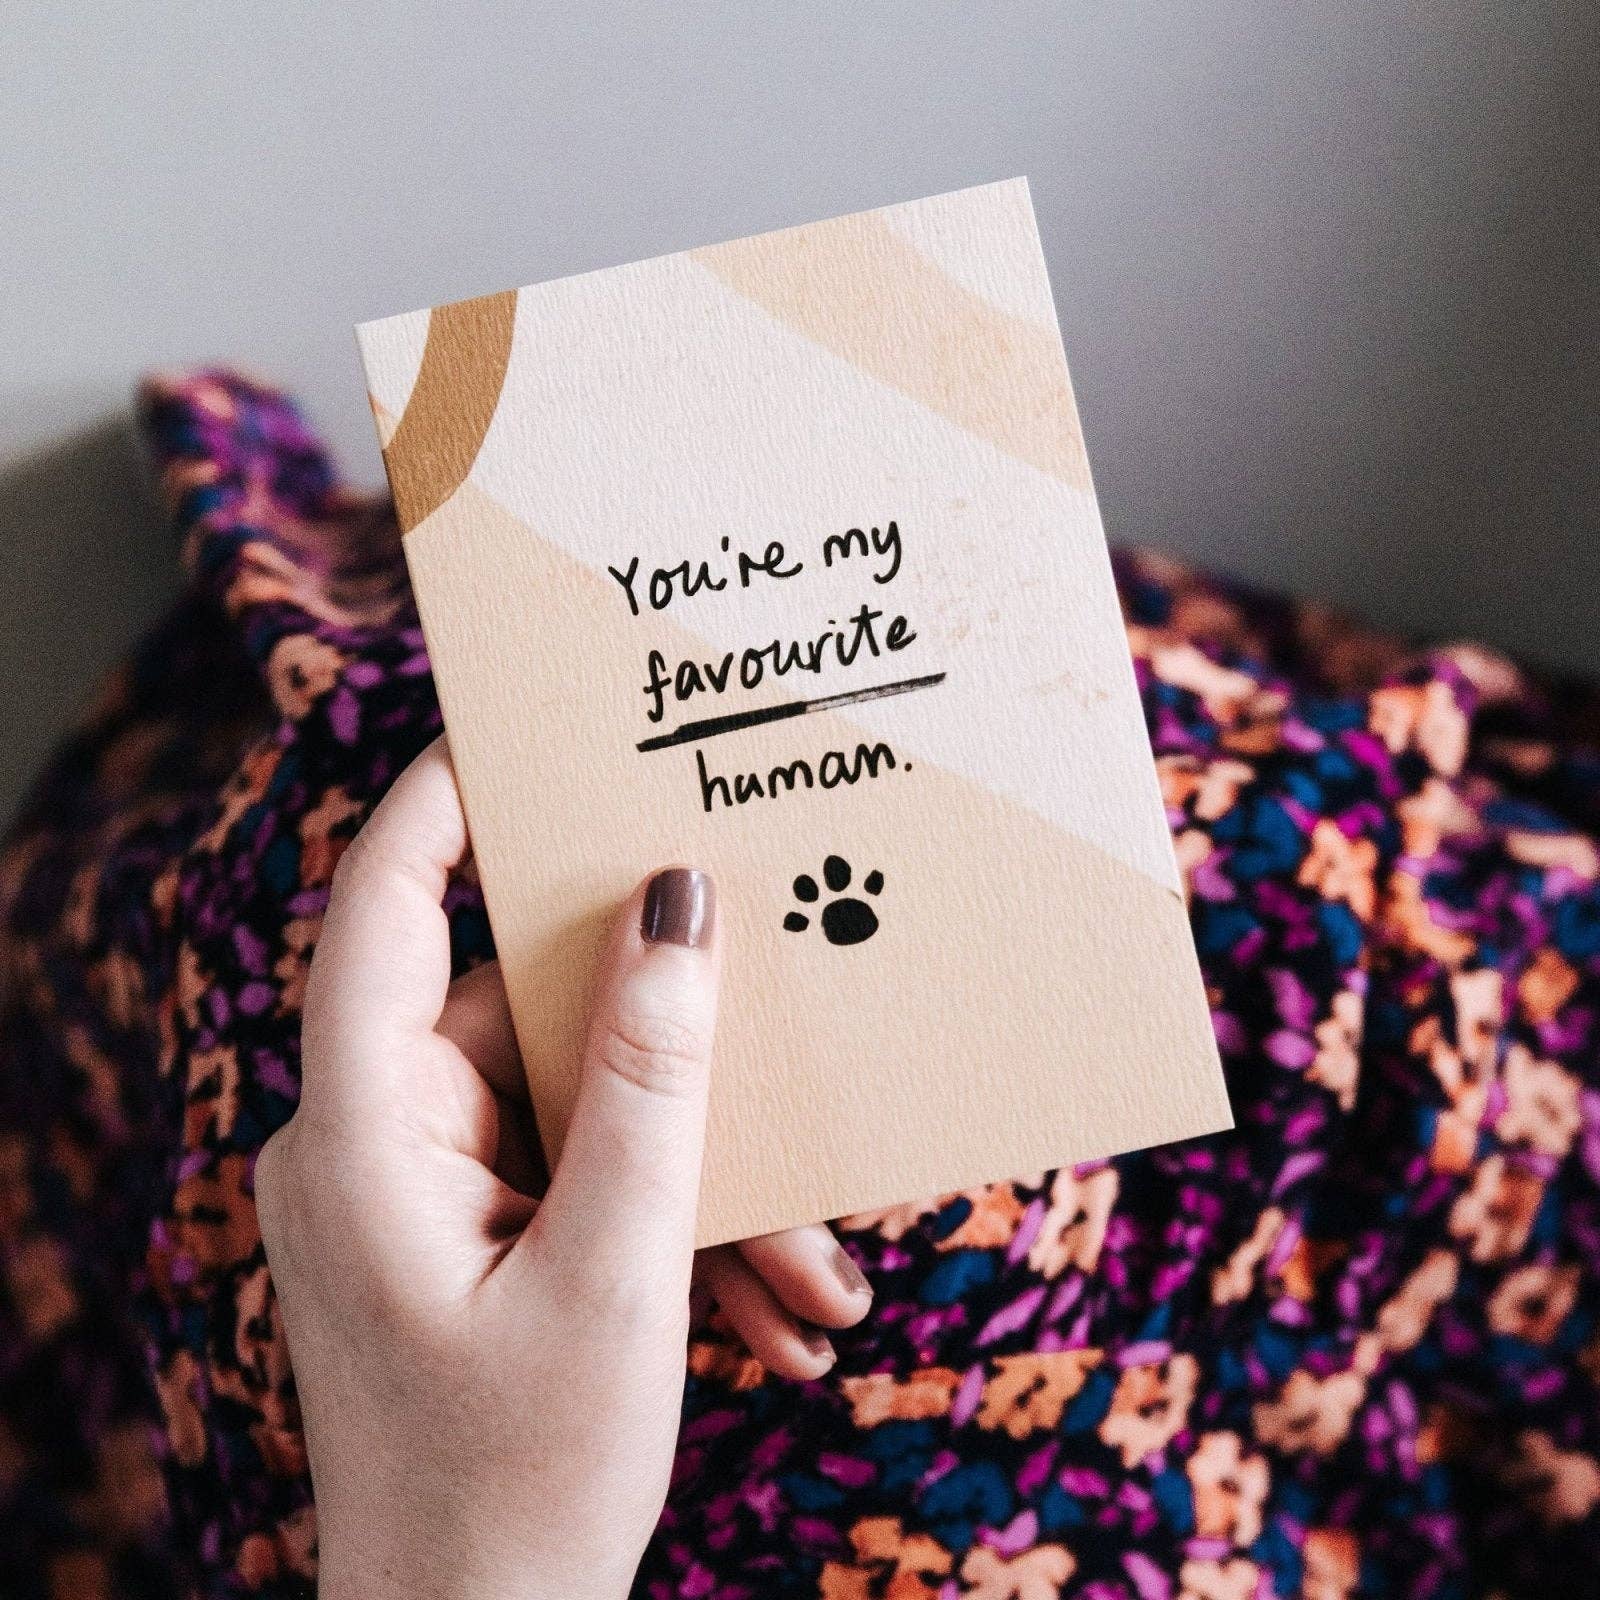 You're my
favourite
human.